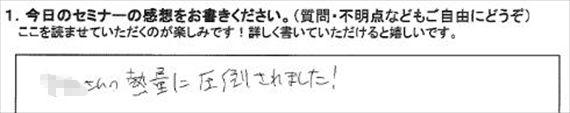 1. 今日のセミナーの感想をお書きください。(質問・不明点などもご自由にどうぞ)
ここを読ませていただくのが楽しみです!詳しく書いていただけると嬉しいです。
さんの熱量に圧倒されました!